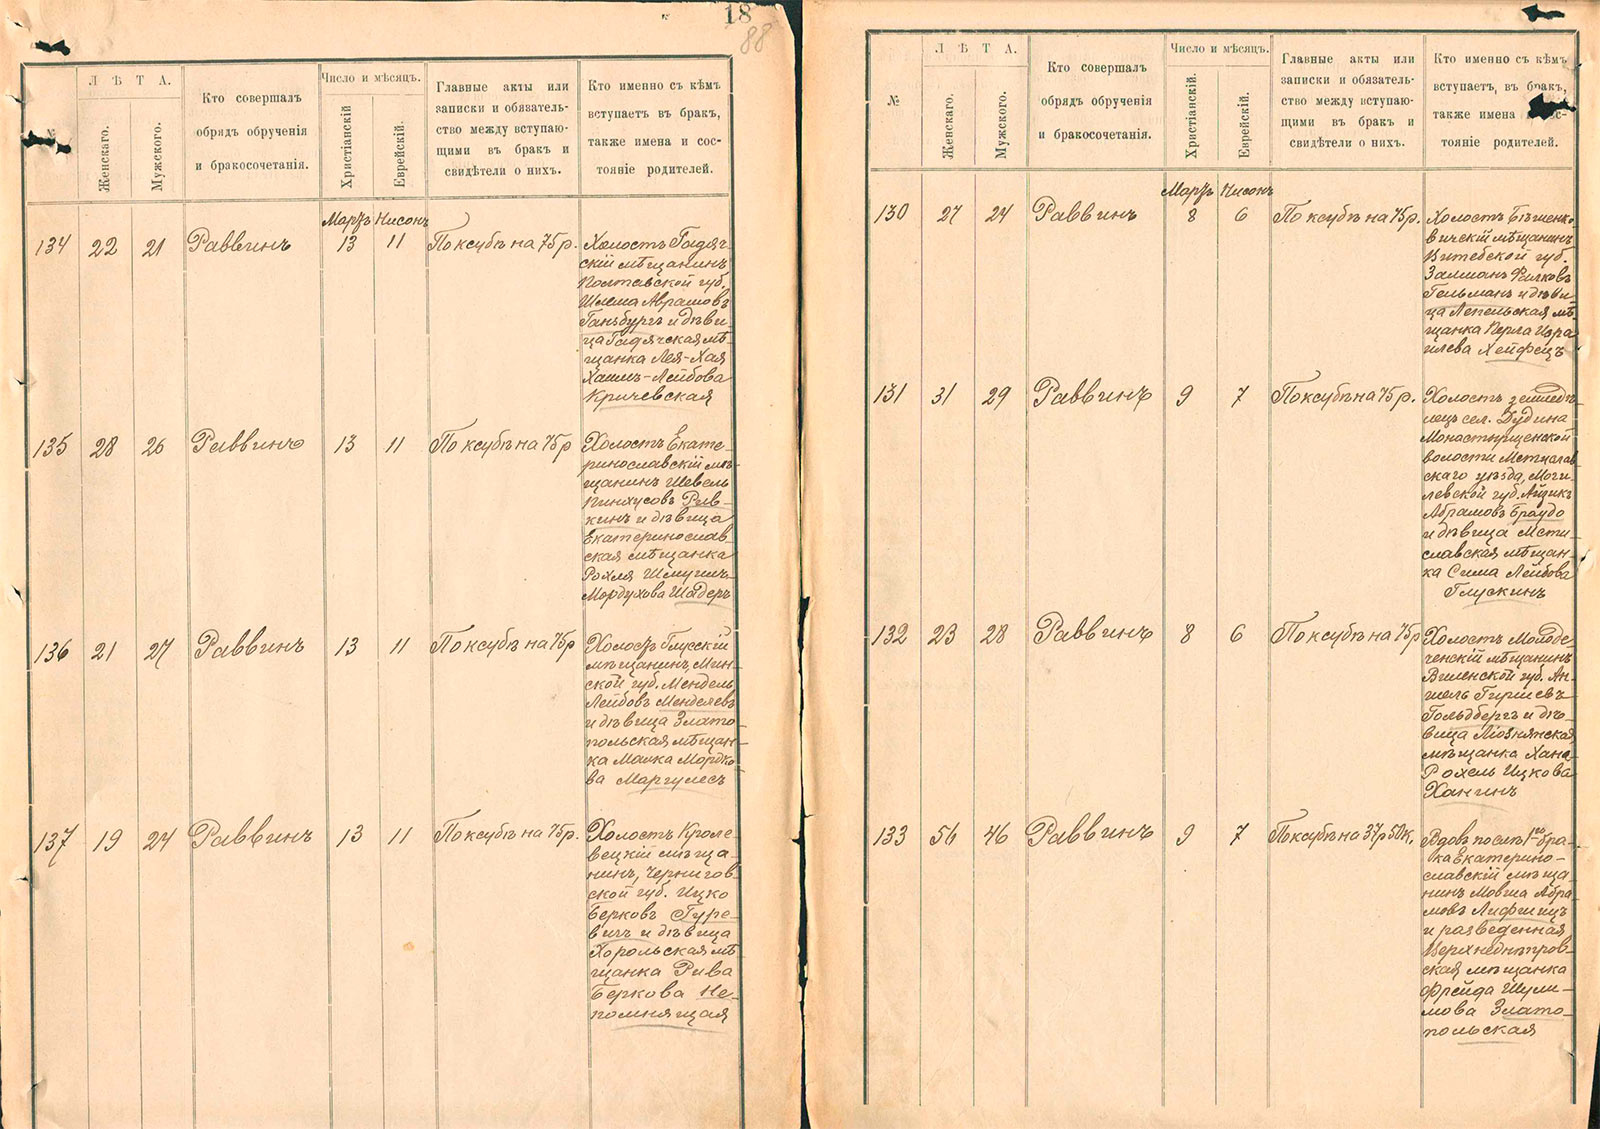 18
88
№
Л Ѣ Т А.
Женскаго.
Мужского.
Кто совершалъ
обрядъ обрученія
и бракосочетанія.
Число и мѣсяцъ.
Христіанскій
Еврейскій.
Главные акты или
записки и обязатель-
ство между вступаю-
щими въ бракъ и
свидѣтели о нихъ.
Кто именно съ кѣмъ
вступаетъ въ бракъ,
также имена и сос-
тояніе родителей.
Мартъ Нисонъ
134 22 21 Раввинъ 13 11 По ксубѣ на 75 р.
Холостъ Гадяч-
скій мѣщанинъ
Полтавской губ.
Шлема Абрамовъ
Ганзбургъ и дѣви-
ца Гадячская мѣ-
щанка Лея-Хая
Хаимъ-Лейбова
Кричевская
135 28 26 Раввинъ 13 11 По ксубѣ на 75 р
Холостъ Екате-
ринославскій мѣ-
щанинъ Шевель
Пинхусовъ Рив-
кинъ и дѣвица
Екатеринослав-
ская мѣщанка
Рохля Шмуилъ-
Мордухова Шадеръ
136 21 27 Раввинъ 13 11 По ксубѣ на 75 р
Холостъ Глусскій
мѣщанинъ, Мин-
ской губ. Мендель
Лейбовъ Менделевъ
и дѣвица Злато-
польская мѣщан-
ка Малка Мордко-
ва Маргулесъ
137 19 24 Раввинъ 13 11 По ксубѣ на 75 р.
Холостъ Кроле-
вецкій мѣща-
нинъ, Чернигов-
ской губ. Ицко
Берковъ Гуре-
вичъ и дѣвица
Хорольская мѣ-
щанка Рива
Беркова Не-
помнящая
№
Л Ѣ Т А.
Женскаго.
Мужского.
Кто совершалъ
обрядъ обрученія
и бракосочетанія.
Число и мѣсяцъ.
Христіанскій.
Еврейскій.
Главные акты или
записки и обязатель-
ство между вступаю-
щими въ бракъ и
свидѣтели о нихъ.
Кто именно съ кѣмъ
вступаетъ, въ бракъ,
также имена и сос-
тояніе родителей.
Мартъ Нисонъ
130 27 24 Раввинъ 8 6 По ксубѣ на 75 р.
Холостъ Бѣшенко-
вичскій мѣщанинъ
Витебской губ.
Залманъ Фалковъ
Гельманъ и дѣви-
ца Лепельская мѣ-
щанка Перла Изра-
илева Хейфецъ
131 31 29 Раввинъ 9 7 По ксубѣ на 75 р.
Холостъ земледѣ-
лецъ сел. Дудина
Монастырщенской
волости Мстислав-
скаго уѣзда, Моги-
левской губ. Айзикъ
Абрамовъ Браудо
и дѣвица Мсти-
славская мѣщан-
ка Сима Лейбова
Глускинъ
132 23 28 Раввинъ 8 6 По ксубѣ на 75 р
Холостъ Молоде-
ченскій мѣщанинъ
Виленской губ. Ан-
шель Гиршевъ
Гольдбергъ и дѣ-
вица Ліознянская
мѣщанка Хана-
Рохель Ицкова
Ханинъ
133 56 46 Раввинъ 9 7 По ксубѣ на 37 р 50 к.
Вдовъ послѣ 1го бра-
ка Екатерино-
славскій мѣща-
нинъ Мовша Абра-
мовъ Лифшицъ
и разведенная
Верхнеднѣпров-
ская мѣщанка
Фрейда Шули-
мова Злато-
польская